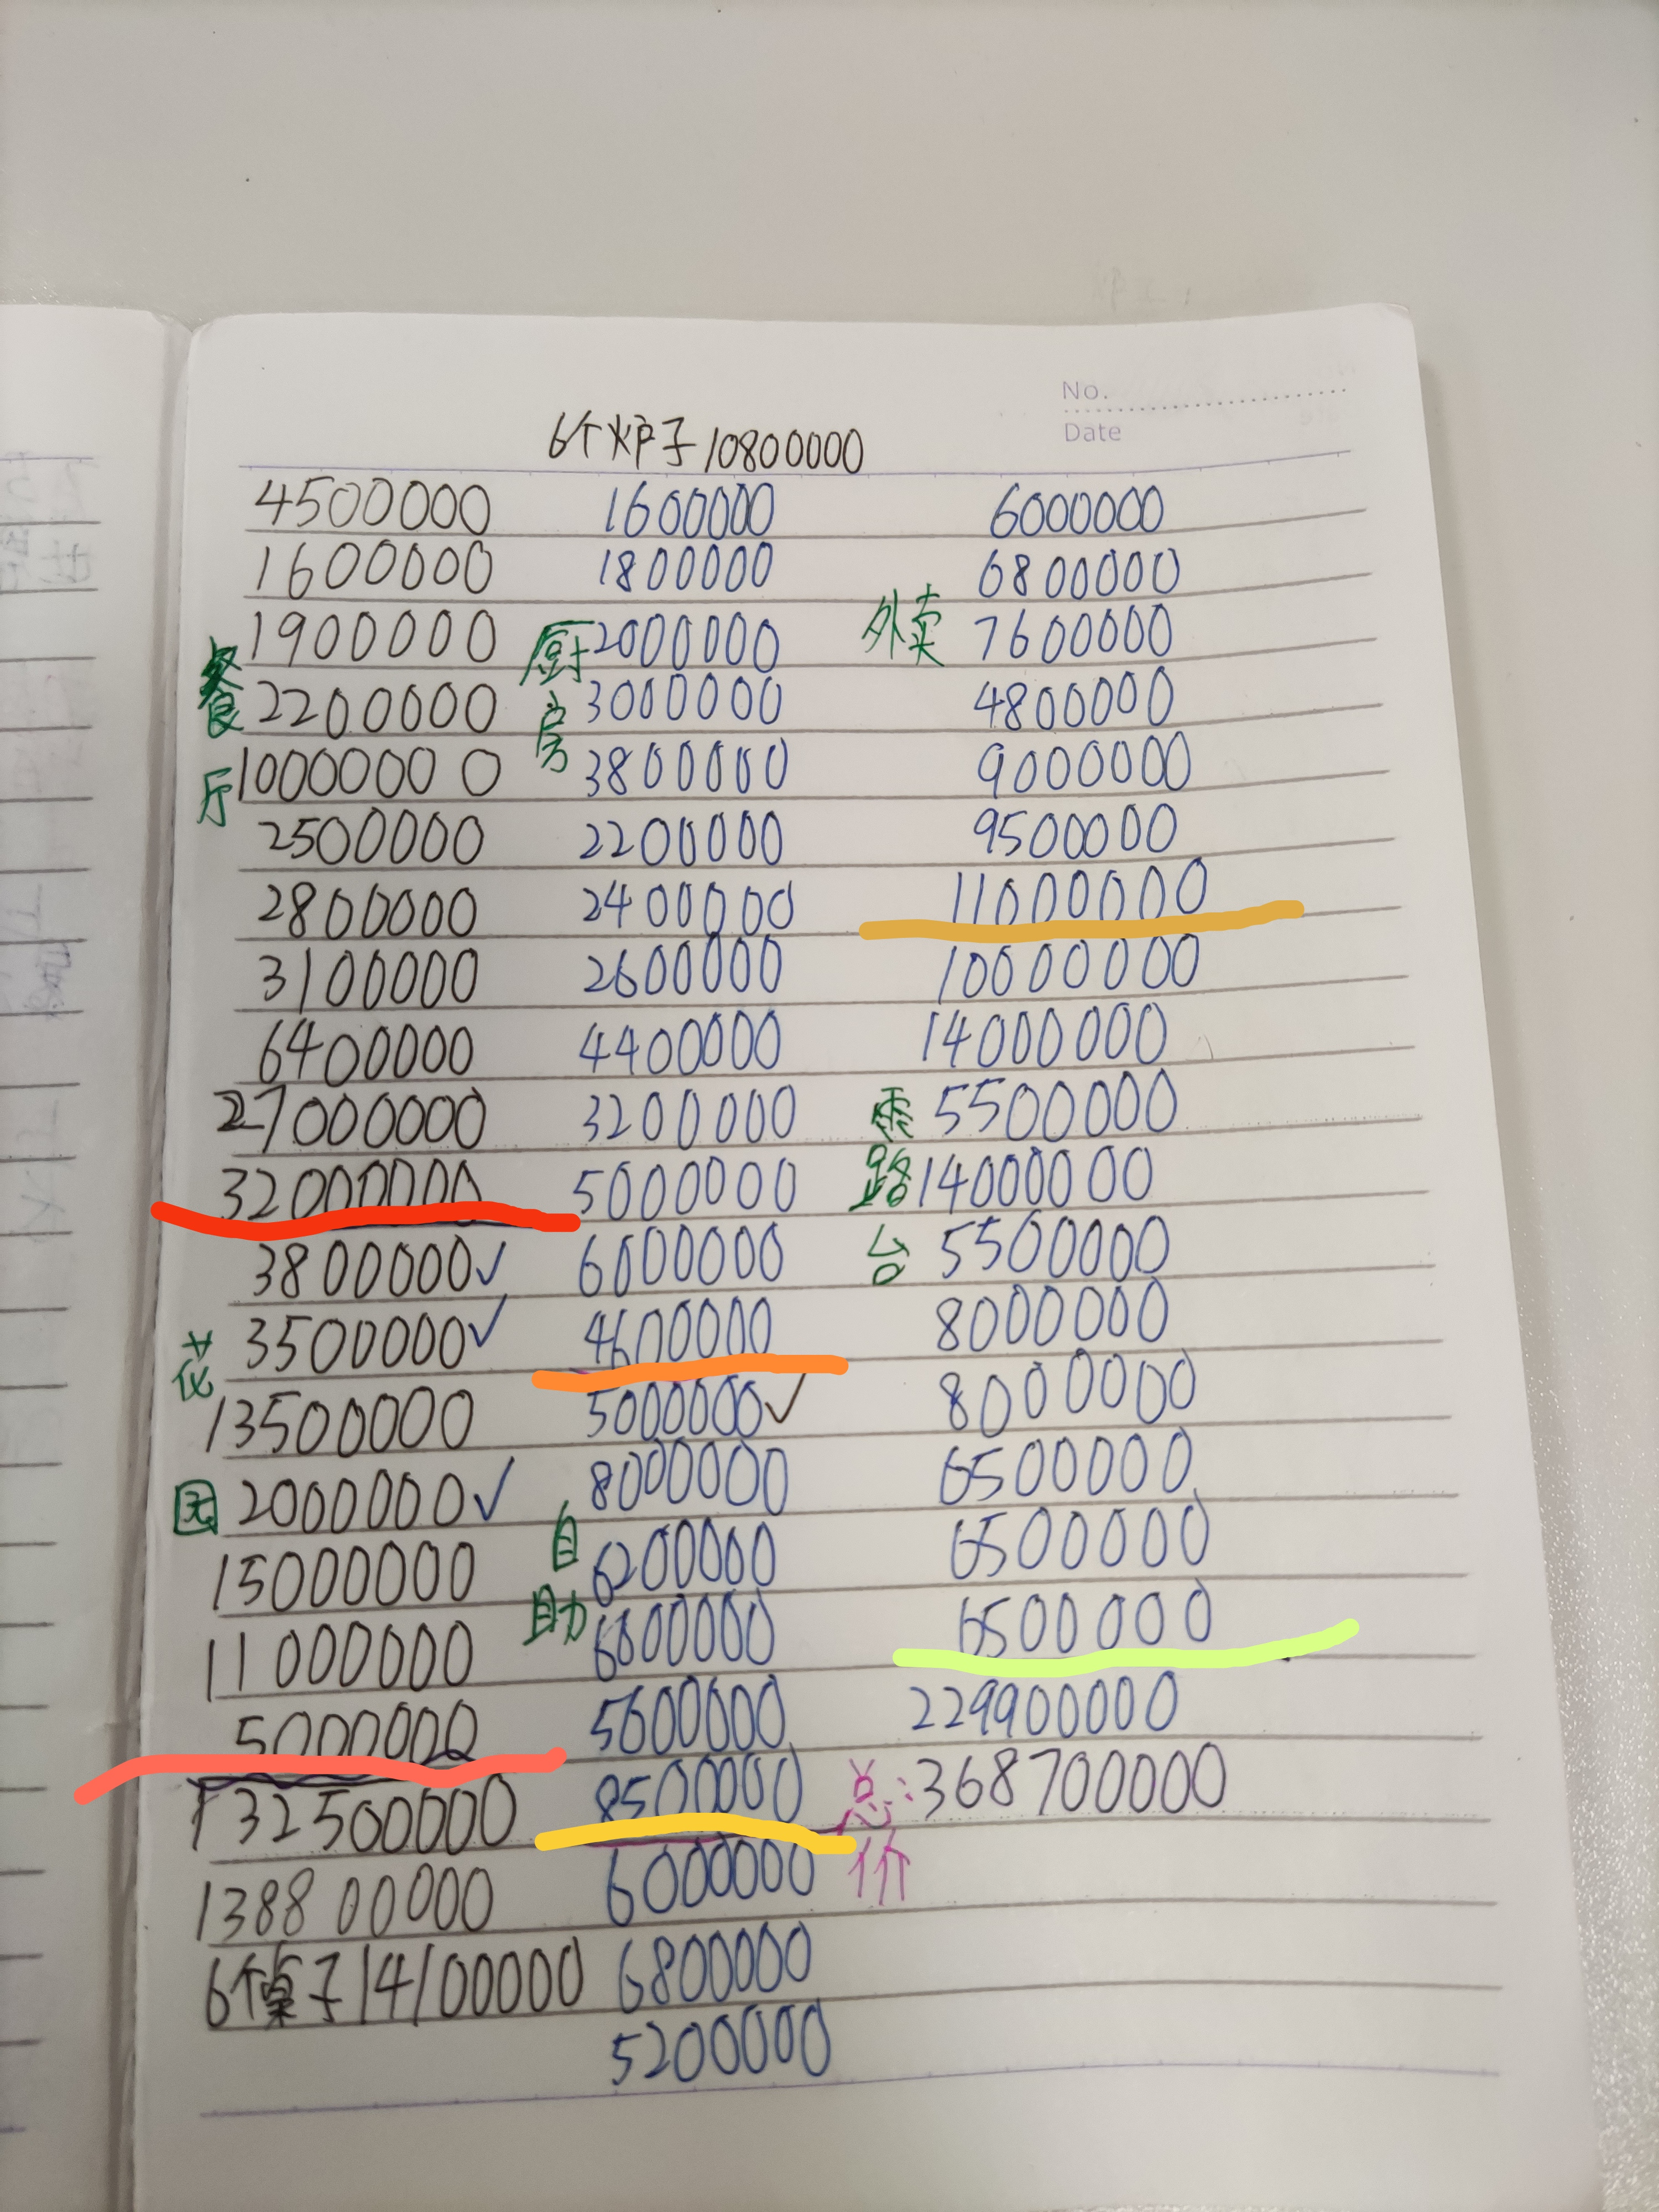 No.
Date
6个炉子10800000
餐厅
4500000
1600000
1900000
2200000
10000000
2500000
2800000
3100000
6400000
27000000
32000000
花园
3800000✓
3500000✓
13500000
2000000✓
15000000
11000000
5000000
132500000
138800000
6个桌子14100000
厨房
1600000
1800000
2000000
3000000
3800000
2200000
2400000
2600000
4400000
3200000
5000000
6000000
4600000
自助
5000000✓
8000000
6200000
6800000
5600000
8500000
外卖
6000000
6800000
5200000
6000000
6800000
7600000
4800000
9000000
9500000
11000000
露台
10000000
14000000
5500000
14000000
5500000
8000000
8000000
6500000
6500000
6500000
229900000
总价:368700000